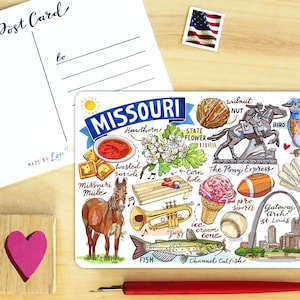 Post Card
to
MADE BY
MISSOURI
walnut
NUT
Hawthorn
STATE
FLOWER
BIRD
The Pony Express
toasted
ravioli
corn
hole
Missouri
Mule
pro
sports
jazz
ice
cream
cone
Gateway
Arch
St Louis
FISH
Channel Catfish